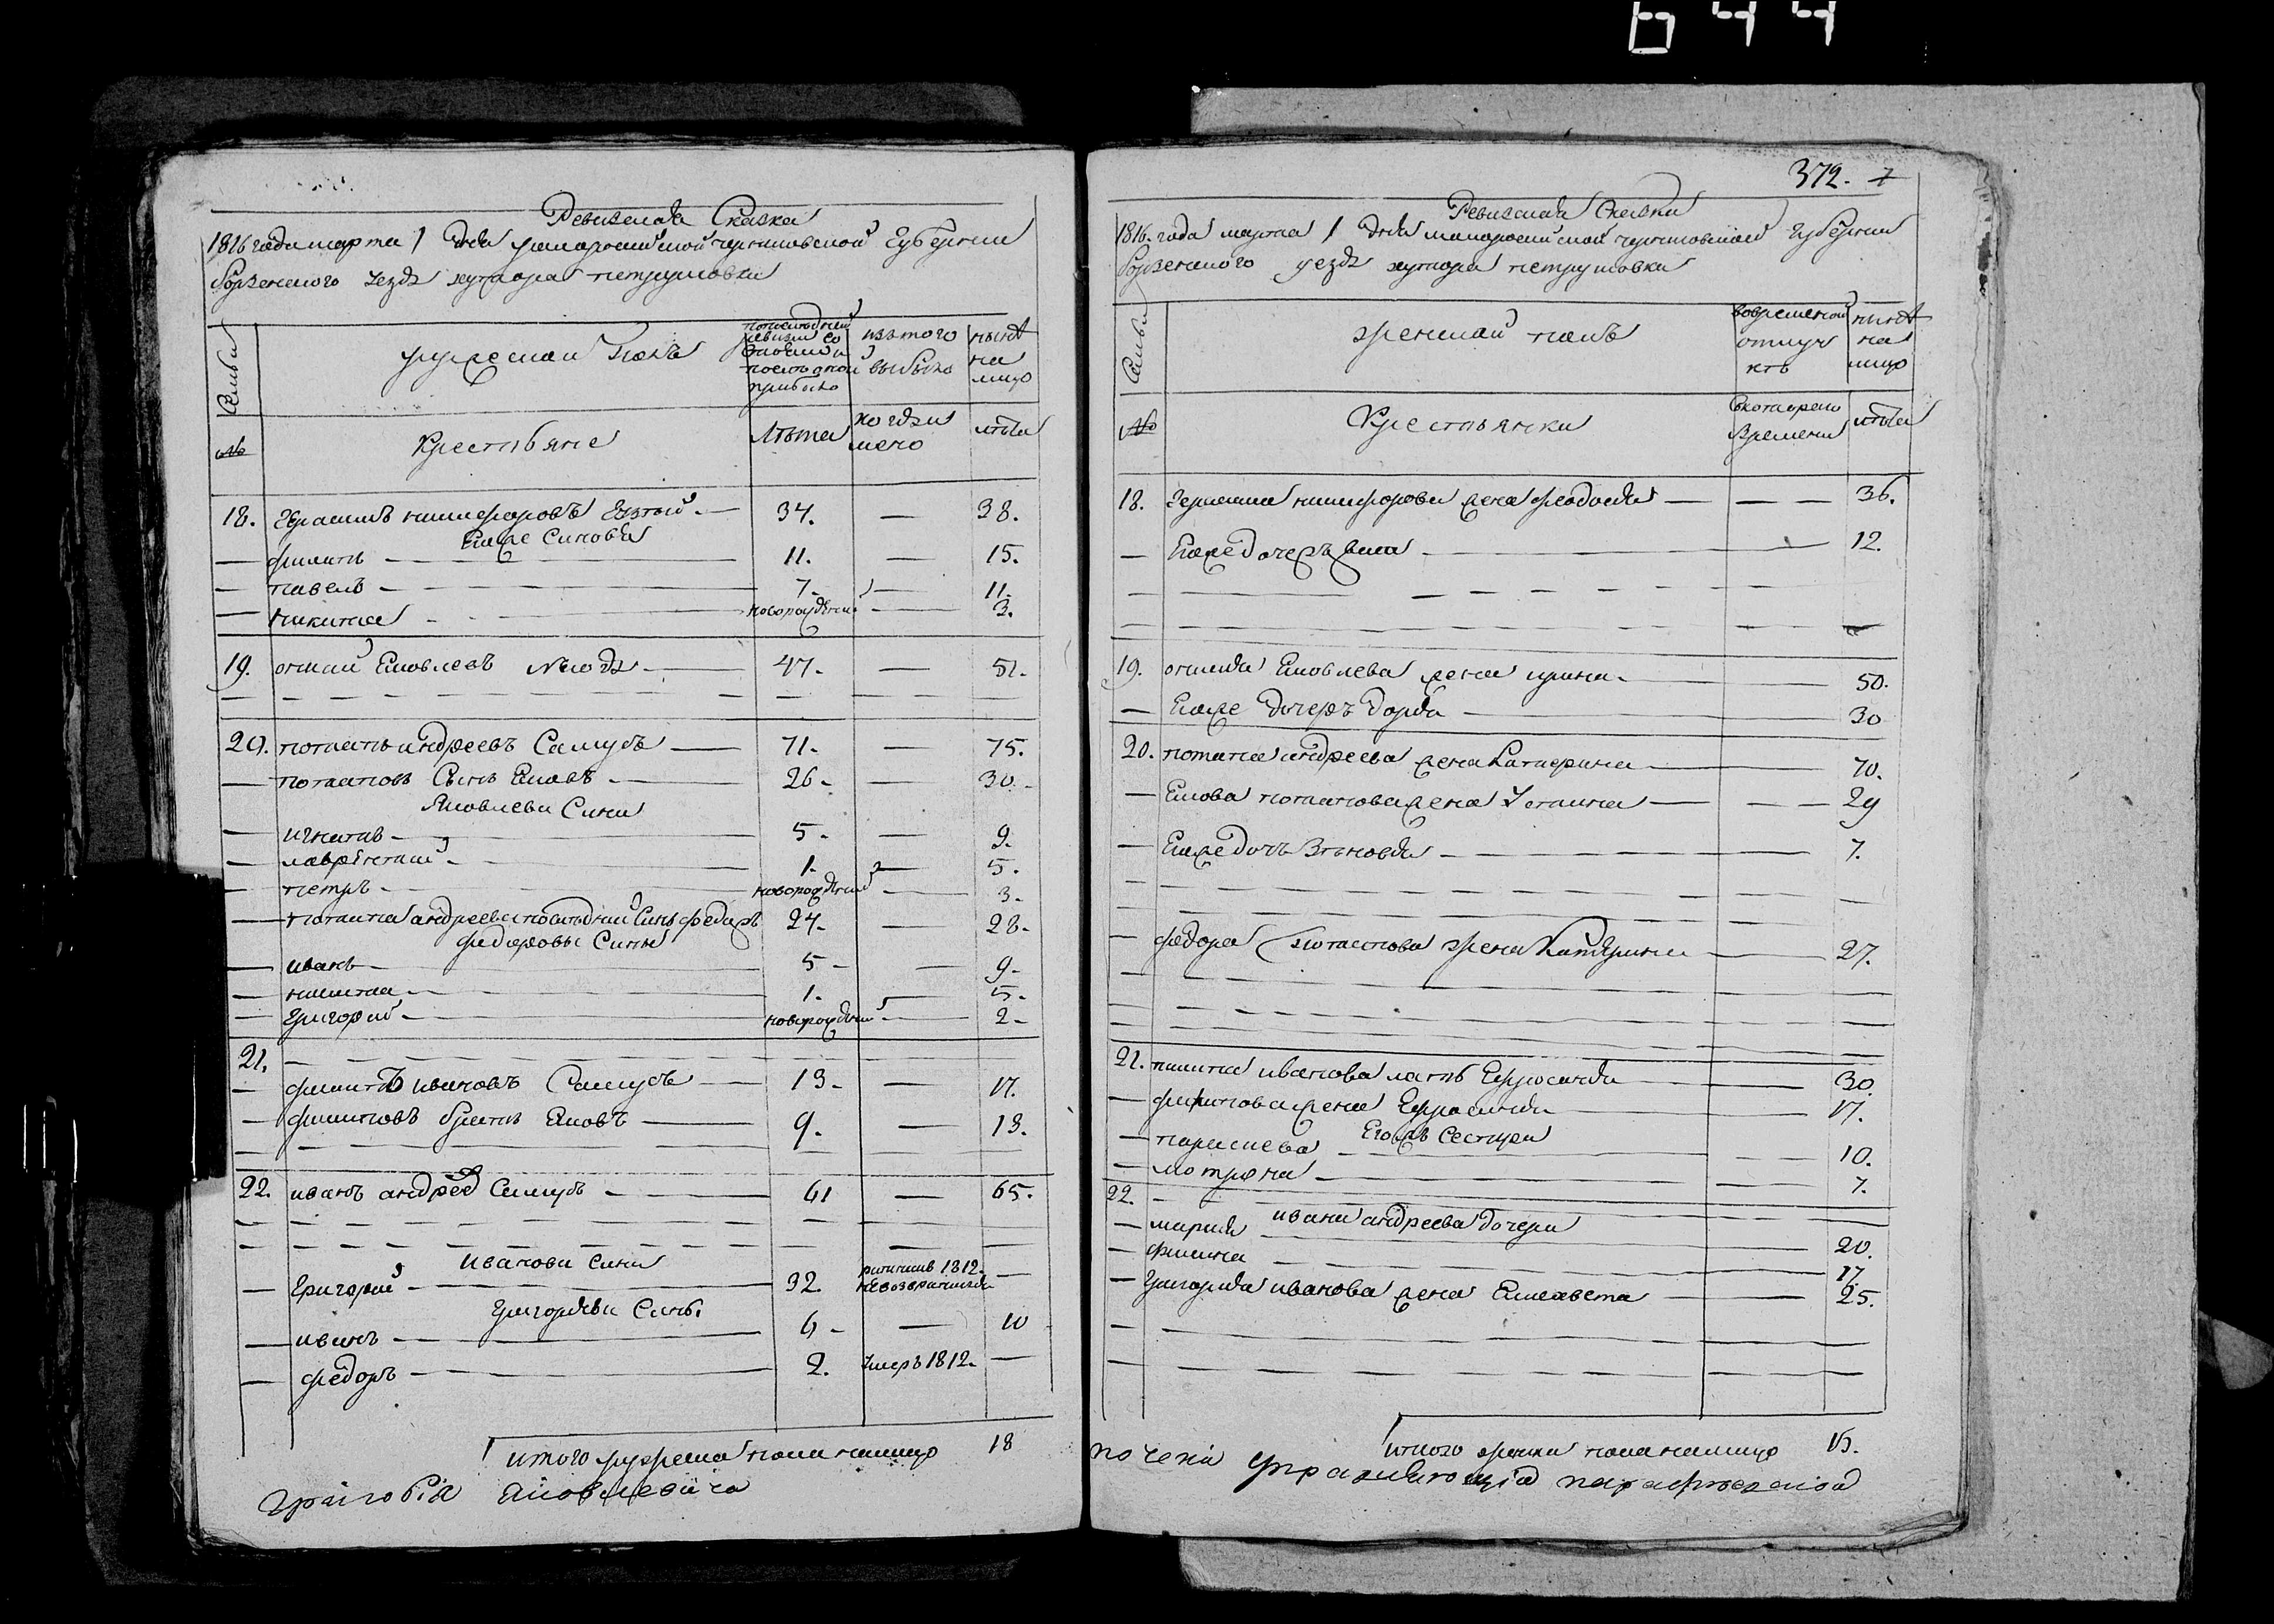 644
Ревизская Сказка
1816 года марта 1 дня малороссийской черниговской Губернии
борзенского уезда хутора петрушовки
Семьи
мужеской полъ
последней ревизии состояло и после оной прибыло
изъ того выбыло
ныне на лицо
№
Крестьяне
Лета
когда именно
лета
18. Герасимъ никифоровъ 34. — 38.
Его же Синовья
— филипъ — 11. — 15.
— павелъ — 7. — 11.
— никита новорожденый — 3.
19. Яковлевъ 47. — 51.
20. потапъ андреевъ Самусь — 71. — 75.
— потаповъ Сынъ Яковъ — 26 — 30.
Яковлеви Сини
— игнатъ — 5 — 9.
— лаврентий — 1. — 5.
— петръ — новорожденый — 3.
— потапа андреева последний Синъ федоръ 24. — 28.
федоровы Сины
— иванъ — 5 — 9
— никита — 1. — 5.
— Григорий — новорожденый — 2
21.
— филипъ ивановъ Самусь — 13 — 17.
— филиповъ братъ Яковъ — 9. — 13.
22. иванъ андреев Самусь — 61 — 65.
Иванови Сини
— Григорий — 32. 1812. невозвратился —
Григориеви Сины
— иванъ — 6 — 10
— федоръ — 2. умеръ 1812. —
итого мужеска пола налицо 18
Григорія Яковлевича
372. 7
Ревизская Сказка
1816. года марта 1 дня малороссийской черниговской Губернии
борзенского уезда хутора петрушовки
Семьи
женской полъ
во временной отлучке
ныне на лицо
№
Крестьянки
Скоторого Времени
лета
18. Герасима никифорова жена феодосия — — — 36.
— Его же дочеръ — 12.
19. Яковлева жена ирина — 50.
— Его же дочеръ Дорья — 30
20. потапа андреева жена Катерина — 70.
— Якова потапова жена Устина — — — 29
— Его же дочъ Зеновия — 7.
— федора Потапова жена Катерина — 27.
21. филипа иванова мать Ефросиния — 30.
— филипова жена Ефросиния — 17.
Его жъ Сестри
— параскева — 10.
— мотрона — 7.
22.
ивана андреева дочери
— мария — 20.
— — 17.
— Григория иванова жена Елисавета — 25.
итого женска пола налицо 15.